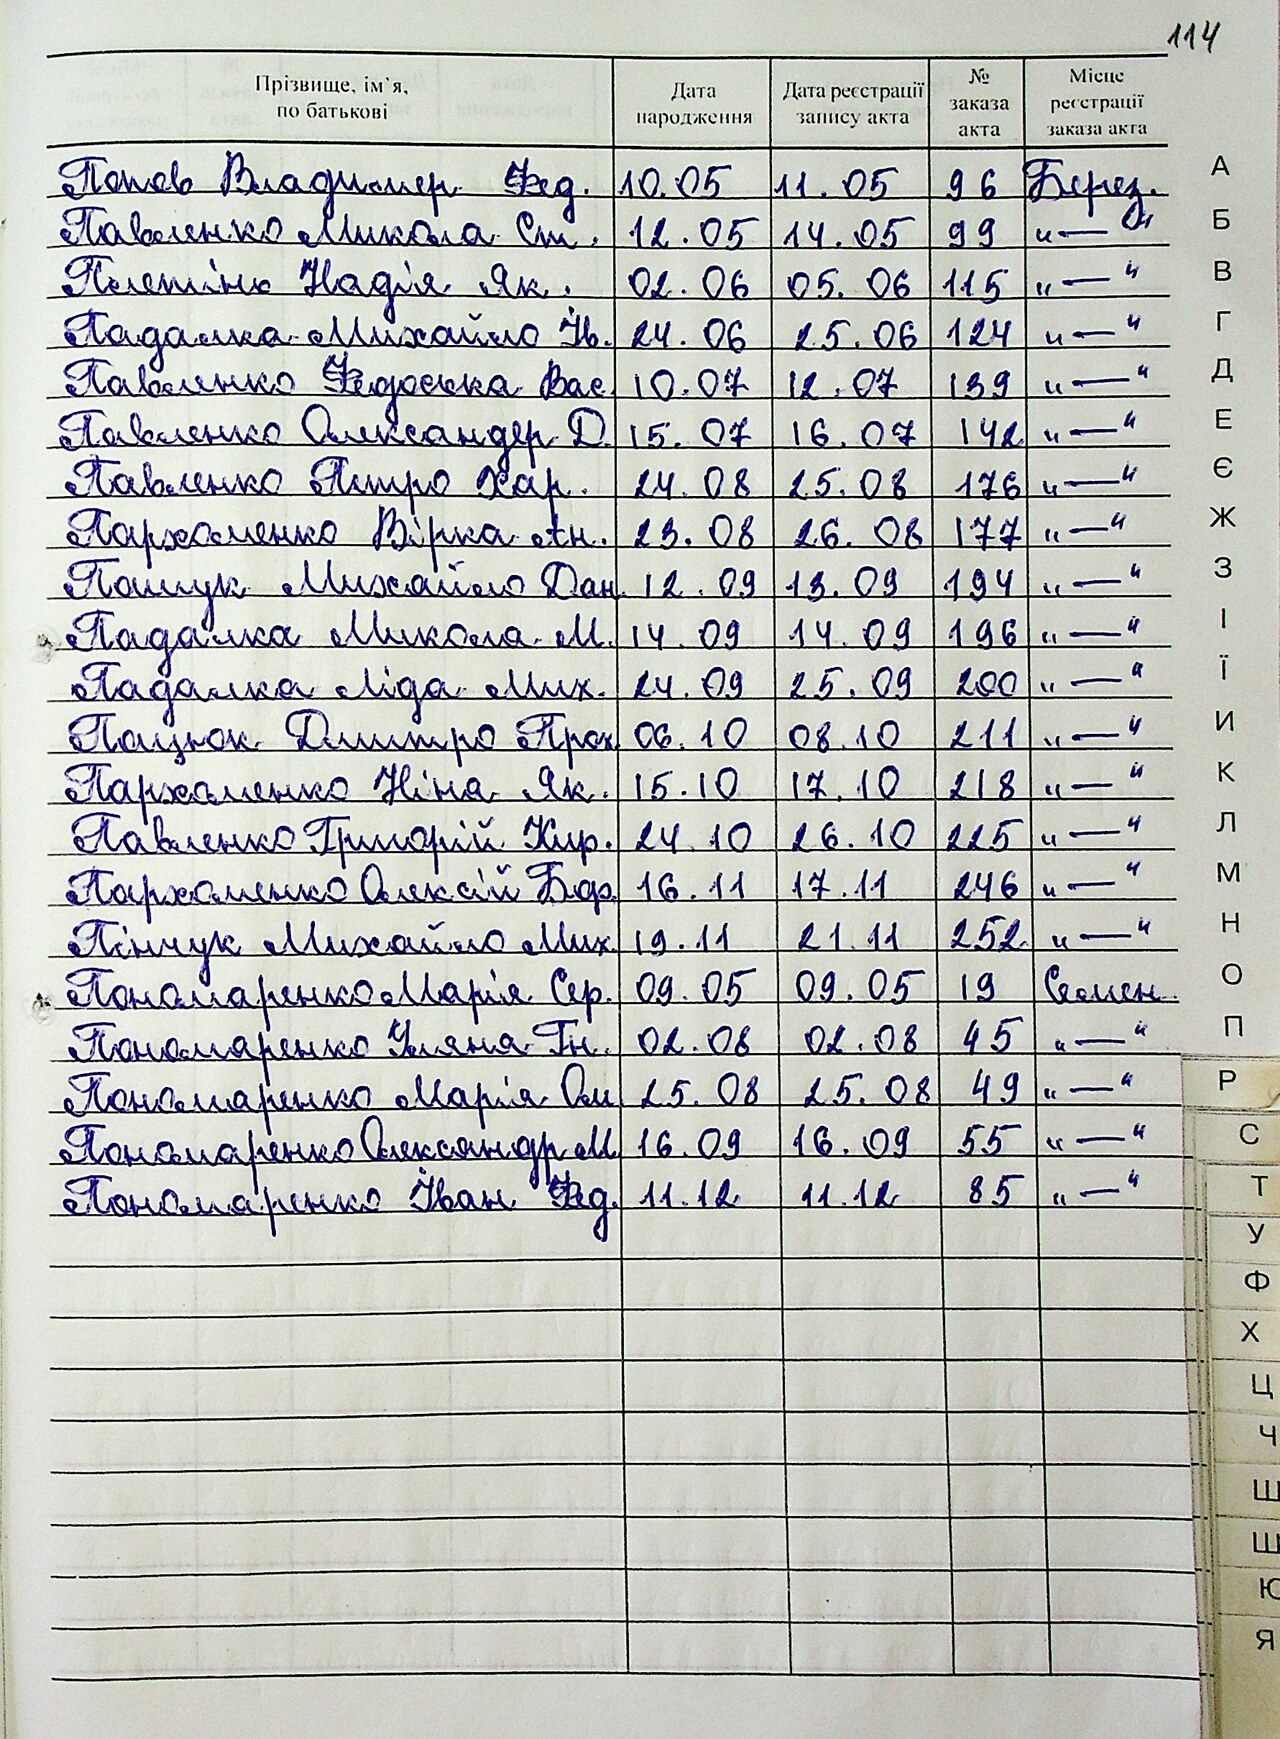 114
Прізвище, ім`я, по батькові | Дата народження | Дата реєстрації запису акта | № заказа акта | Місце реєстрації заказа акта
Попов Владимер Фед. 10.05 11.05 96 Берез.
Павленко Микола Ст. 12.05 14.05 99 "—"
Плетінь Надія Як. 02.06 05.06 115 "—"
Падалка Михайло Ів. 24.06 25.06 124 "—"
Павленко Федоська Вас. 10.07 12.07 139 "—"
Павленко Олександер Д. 15.07 16.07 142 "—"
Павленко Петро Хар. 24.08 25.08 176 "—"
Пархоменко Вірка Ан. 23.08 26.08 177 "—"
Пошук Михайло Дан. 12.09 13.09 194 "—"
Падалка Микола М. 14.09 14.09 196 "—"
Падалка Ліда Мих. 24.09 25.09 200 "—"
Пацюк Дмитро Прох. 06.10 08.10 211 "—"
Пархоменко Ніна Як. 15.10 17.10 218 "—"
Павленко Григорій Кир. 24.10 26.10 225 "—"
Пархоменко Олексій 16.11 17.11 246 "—"
Пінчук Михайло Мих. 19.11 21.11 252 "—"
Пономаренко Марія Сер. 09.05 09.05 19 Семен.
Пономаренко Уляна Гн. 02.08 02.08 45 "—"
Пономаренко Марія Ом. 25.08 25.08 49 "—"
Пономаренко Олександр М. 16.09 16.09 55 "—"
Пономаренко Іван Фед. 11.12 11.12 85 "—"
А
Б
В
Г
Д
Е
Є
Ж
З
І
Ї
И
К
Л
М
Н
О
П
Р
С
Т
У
Ф
Х
Ц
Ч
Ш
Щ
Ю
Я